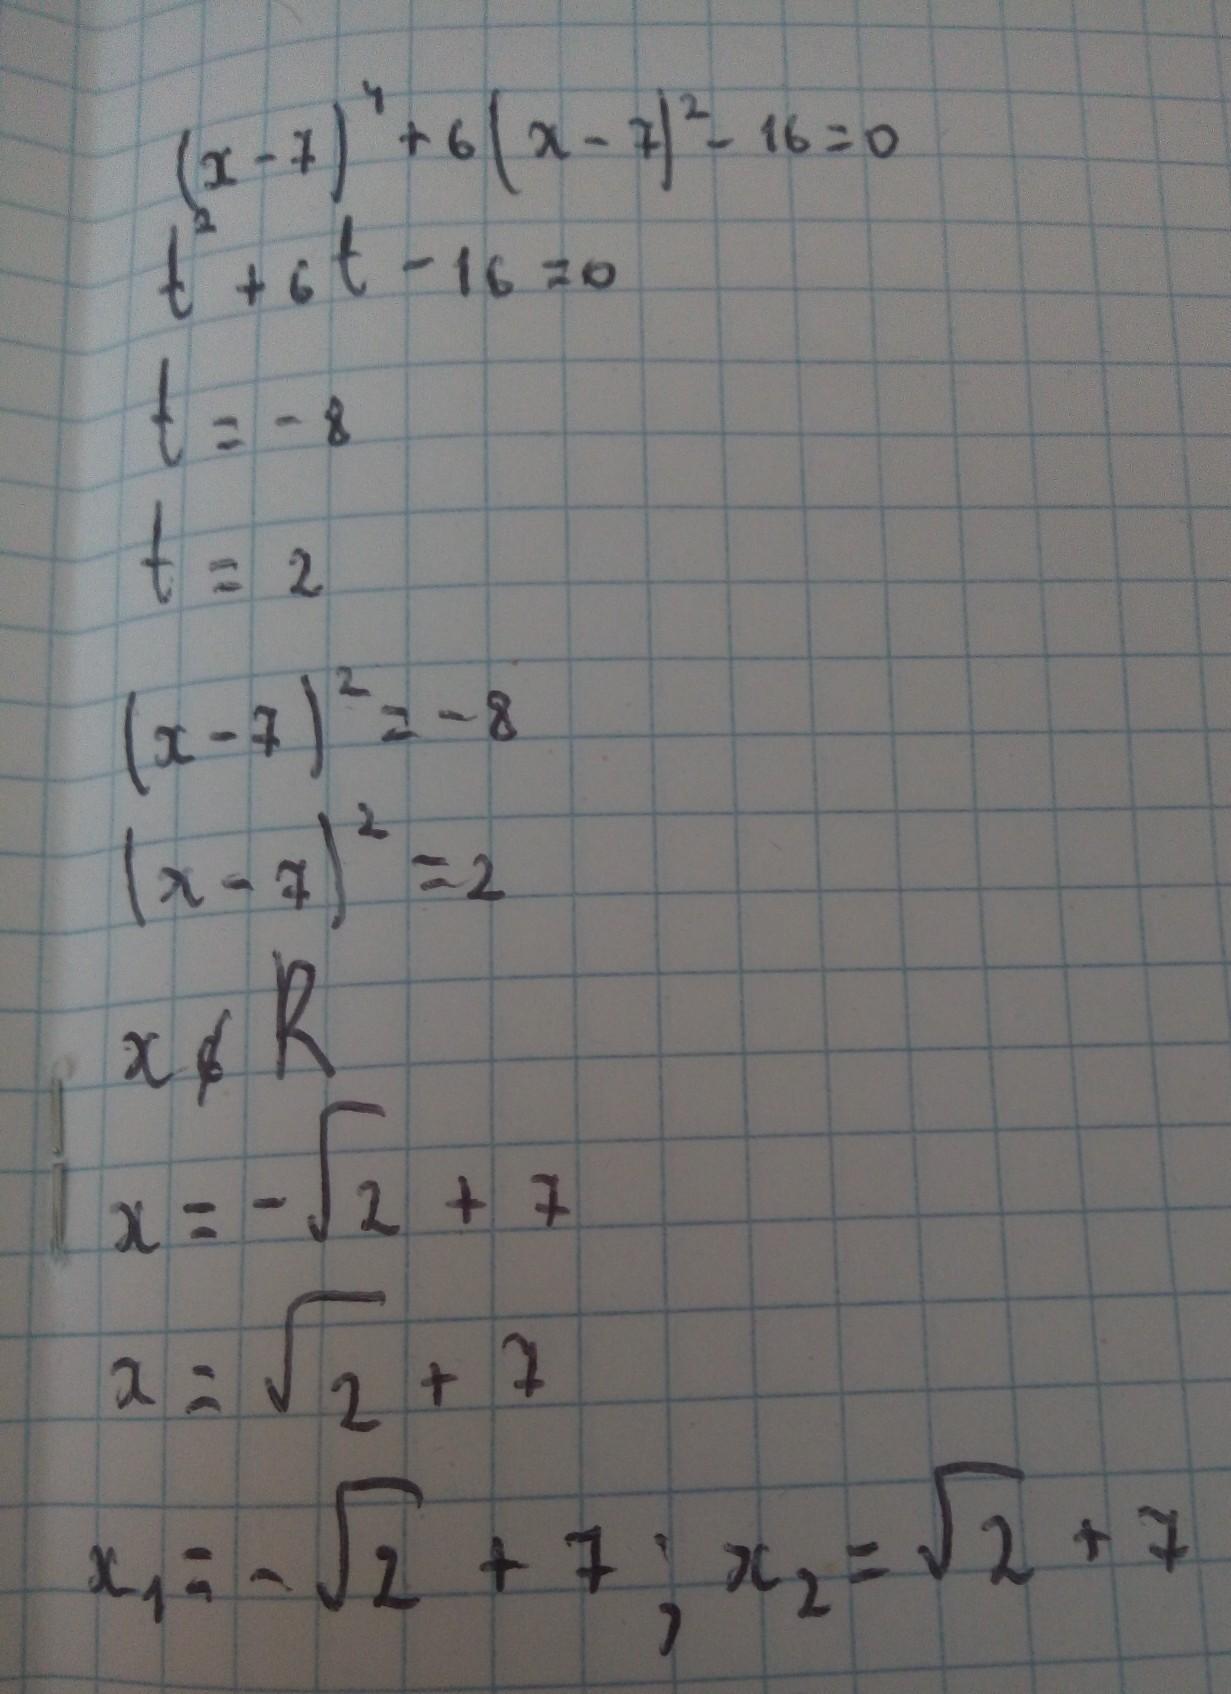 (x-7)⁴+6(x-7)²-16=0
t²+6t-16=0
t=-8
t=2
(x-7)²=-8
(x-7)²=2
x∉R
x=-√2+7
x=√2+7
x₁=-√2+7; x₂=√2+7